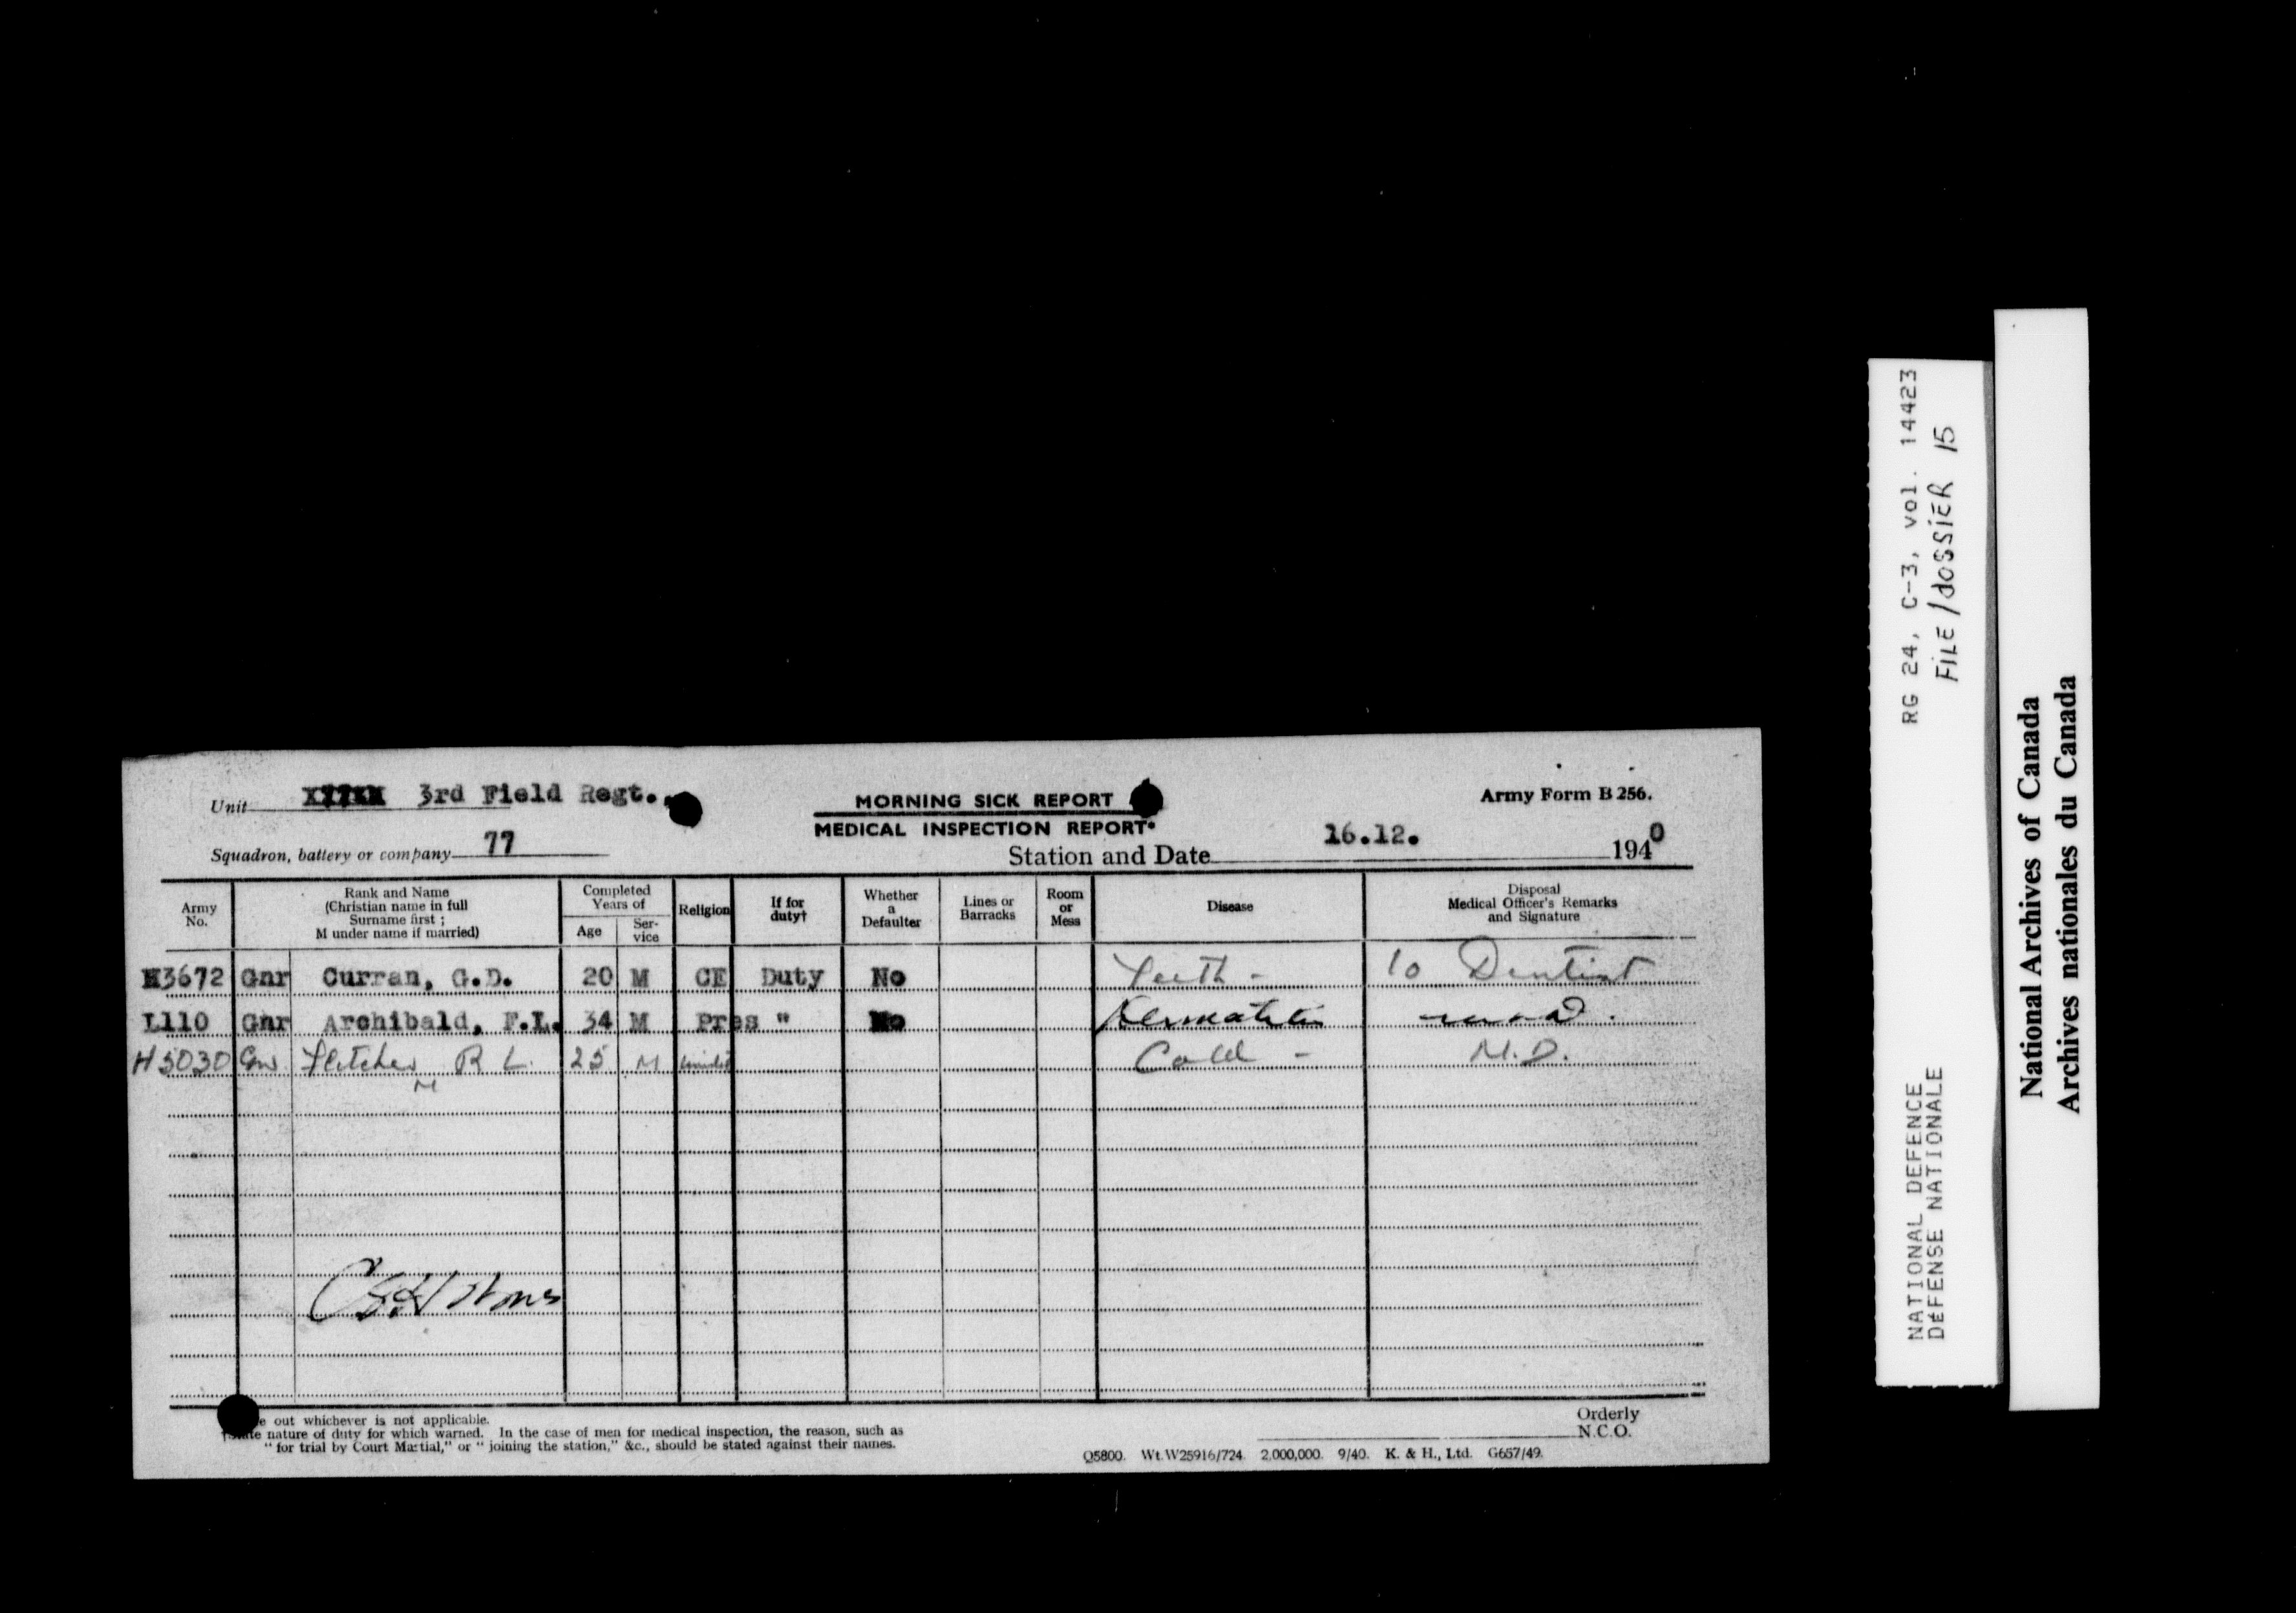 Unit 3rd Field Regt.
MORNING SICK REPORT
MEDICAL INSPECTION REPORT*
Army Form B 256.
Squadron, battery or company 77
Station and Date 16.12. 1940
Army No.
Rank and Name
(Christian name in full
Surname first ;
M under name if married)
Completed Years of
Age
Ser-
vice
Religion
If for duty†
Whether a Defaulter
Lines or Barracks
Room or Mess
Disease
Disposal
Medical Officer's Remarks
and Signature
H3672 Gnr Curran, G.D. 20 M CE Duty No Teeth - To Dentist
L110 Gnr Archibald, F.L. 34 M Pres " No Dermatitis
H5030 Gnr Fletcher R L. 25 M Cold - M.D.
M
e out whichever is not applicable.
†State nature of duty for which warned. In the case of men for medical inspection, the reason, such as
" for trial by Court Martial," or " joining the station," &c., should be stated against their names.
Orderly
N.C.O.
Q5800. Wt.W25916/724. 2,000,000. 9/40. K. & H., Ltd. G657/49.
RG 24, C-3, vol. 14423
FILE/dOSSIER 15
NATIONAL DEFENCE
DéFENSE NATIONALE
National Archives of Canada
Archives nationales du Canada